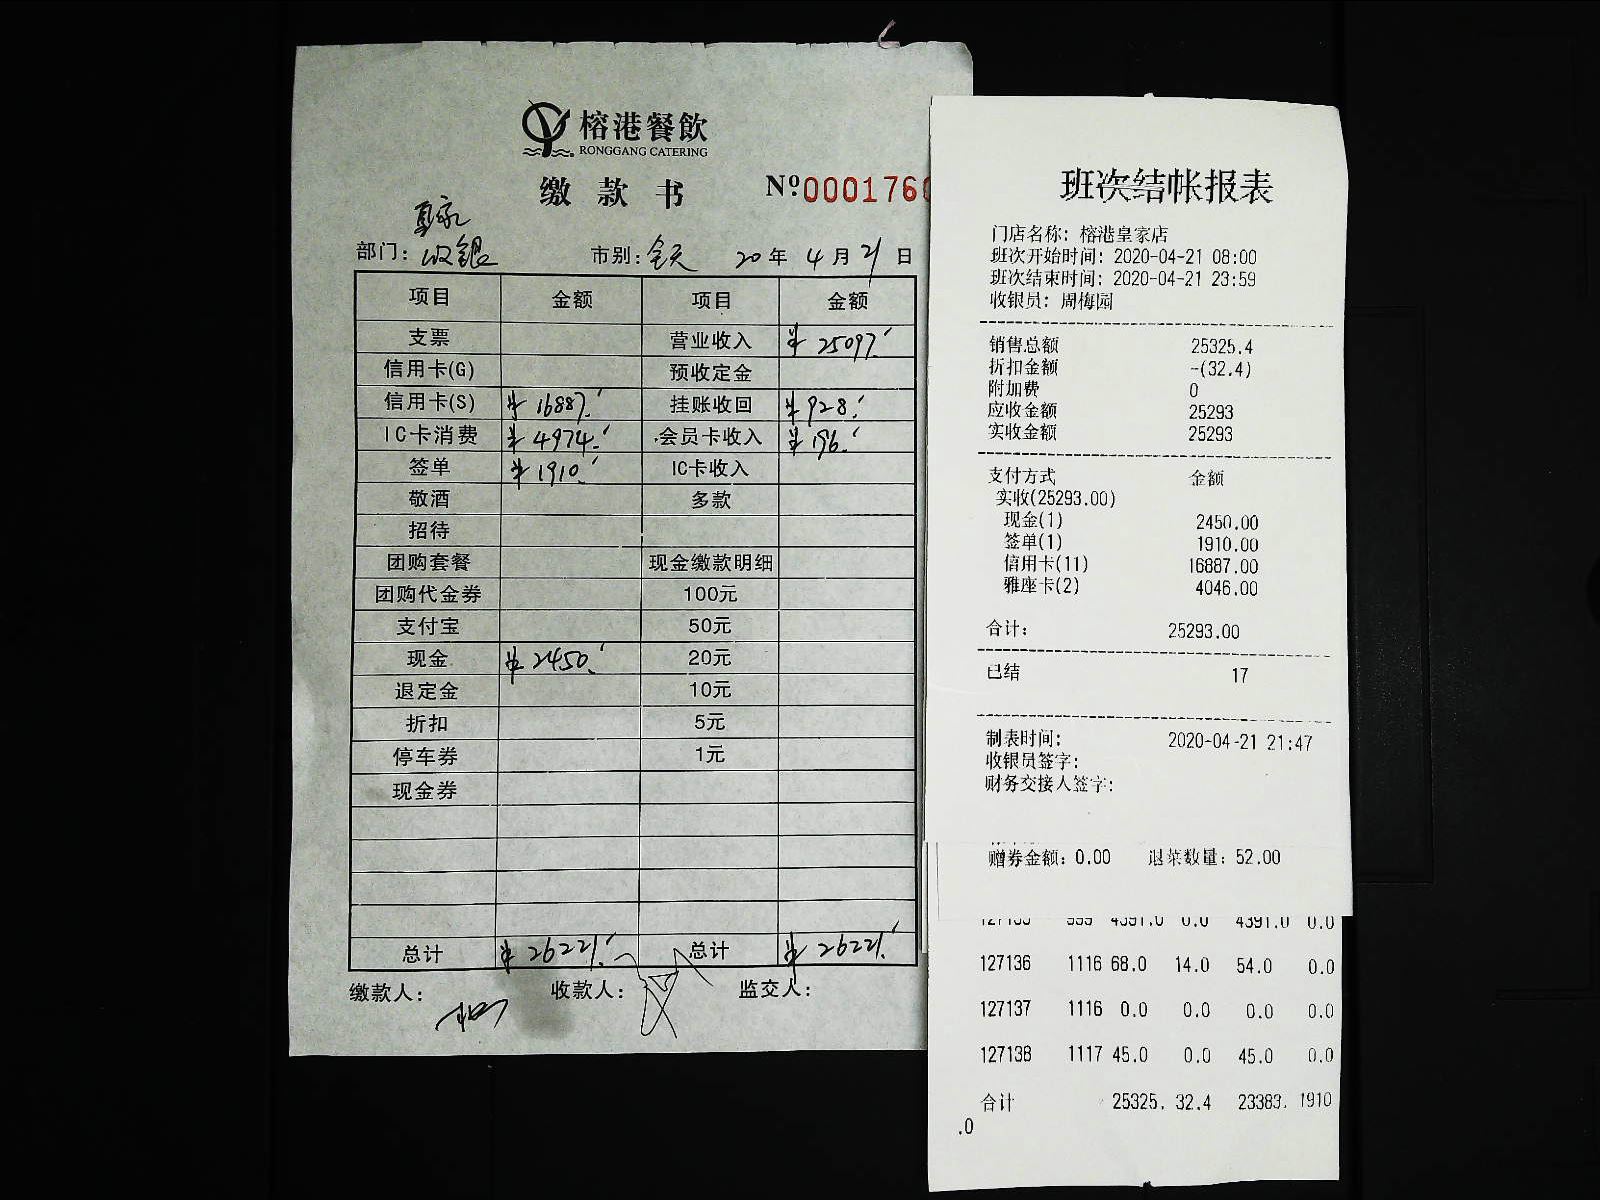 榕港餐飲
RONGGANG CATERING
缴款书 Nº000176
皇家
部门：收银 市别：全天 20年4月21日
项目 金额 项目 金额
支票 营业收入 ¥25097.
信用卡(G) 预收定金
信用卡(S) ¥16887. 挂账收回 ¥928.
IC卡消费 ¥4974. 会员卡收入 ¥196.
签单 ¥1910. IC卡收入
敬酒 多款
招待
团购套餐 现金缴款明细
团购代金券 100元
支付宝 50元
现金 ¥2450. 20元
退定金 10元
折扣 5元
停车券 1元
现金券
总计 ¥26221. 总计 ¥26221.
缴款人： 收款人： 监交人：
班次结帐报表
门店名称：榕港皇家店
班次开始时间：2020-04-21 08:00
班次结束时间：2020-04-21 23:59
收银员：周梅园
销售总额 25325.4
折扣金额 -(32.4)
附加费 0
应收金额 25293
实收金额 25293
支付方式 金额
实收(25293.00)
现金(1) 2450.00
签单(1) 1910.00
信用卡(11) 16887.00
雅座卡(2) 4046.00
合计： 25293.00
已结 17
制表时间： 2020-04-21 21:47
收银员签字：
财务交接人签字：
赠券金额：0.00 退菜数量：52.00
127135 999 4391.0 0.0 4391.0 0.0
127136 1116 68.0 14.0 54.0 0.0
127137 1116 0.0 0.0 0.0 0.0
127138 1117 45.0 0.0 45.0 0.0
合计 25325. 32.4 23383. 1910
.0